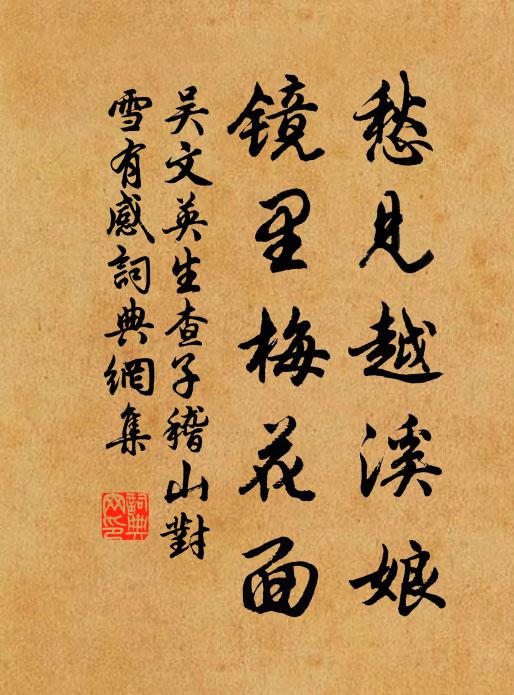 愁见越溪娘
镜里梅花面
吴文英生查子稽山對
雪有感詞典網集
詞典
网印